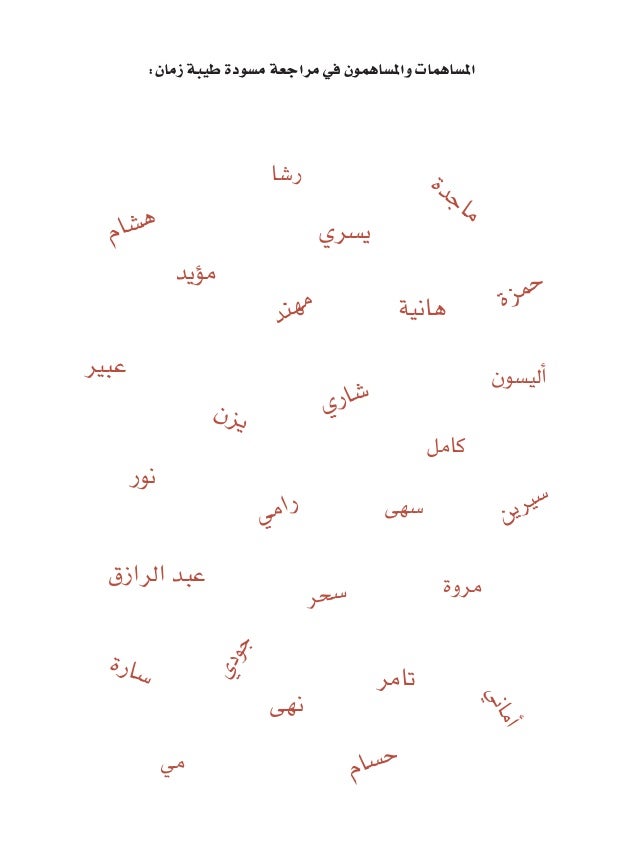 المساهمات والمساهمون في مراجعة مسودة طيبة زمان :
رشا
ماجدة
هشام
يسري
مؤيد
حمزة
هانية
مهند
عبير
أليسون
شاري
يزن
كامل
نور
سيرين
سهى
رامي
عبد الرازق
مروة
سحر
جودي
سارة
تامر
أماني
نهى
حسام
مي